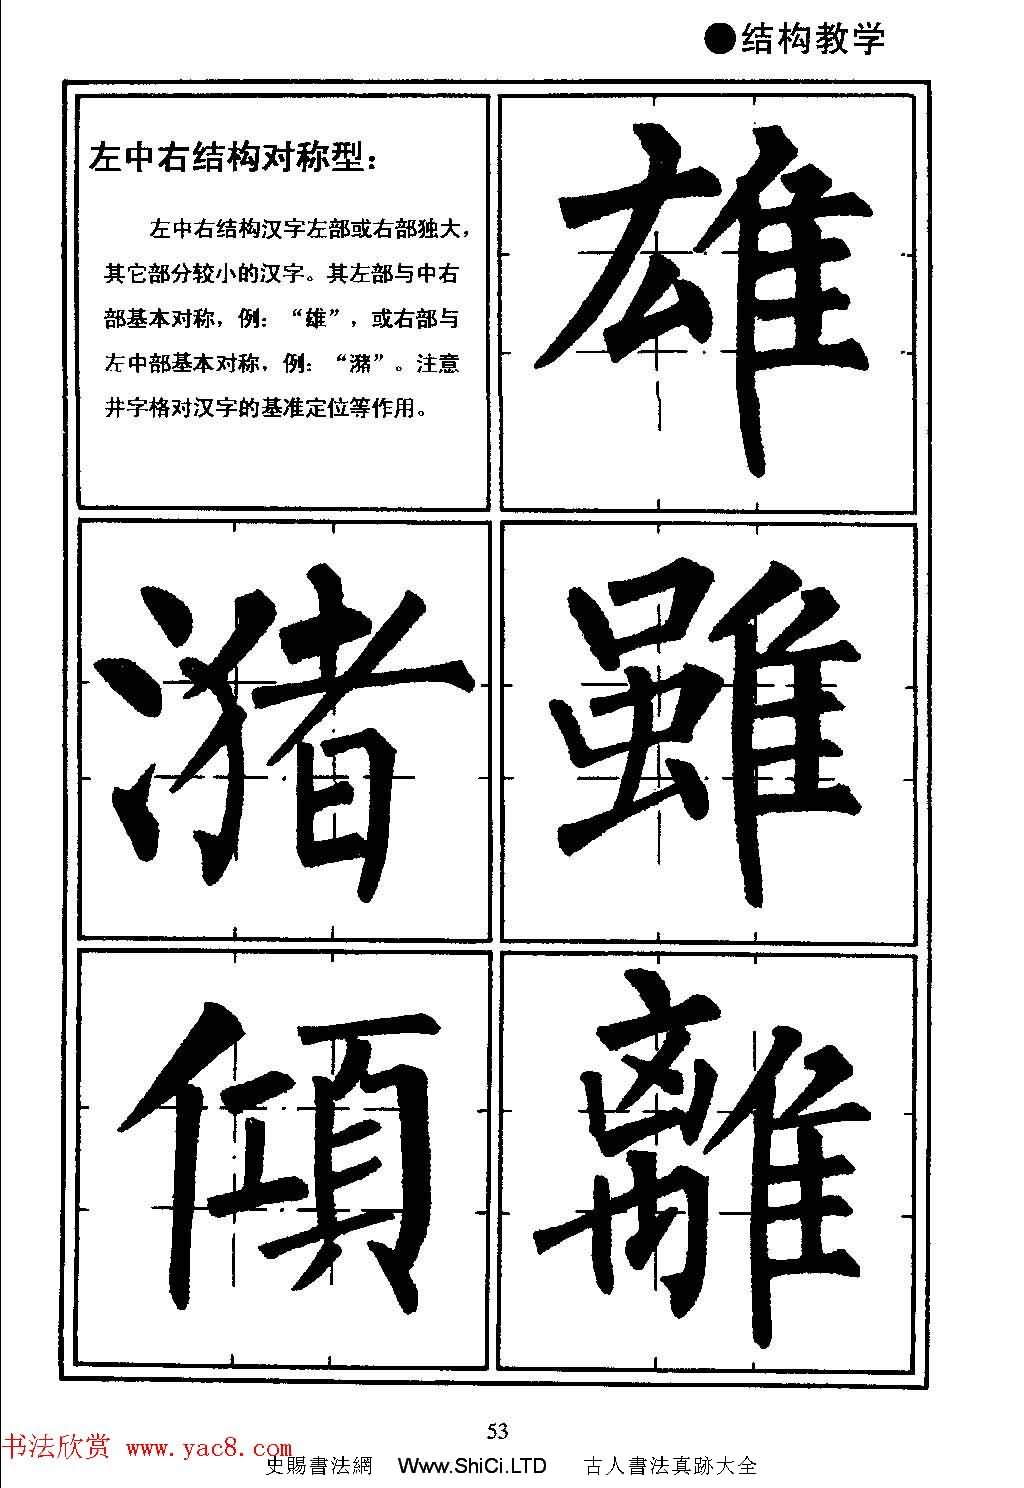 ●结构教学
左中右结构对称型：
左中右结构汉字左部或右部独大，
其它部分较小的汉字。其左部与中右
部基本对称，例：“雄”，或右部与
左中部基本对称，例：“潴”。注意
井字格对汉字的基准定位等作用。
雄
潴
雖
傾
離
53
书法欣赏 www.yac8.com
史賜書法網 Www.ShiCi.LTD 古人書法真跡大全